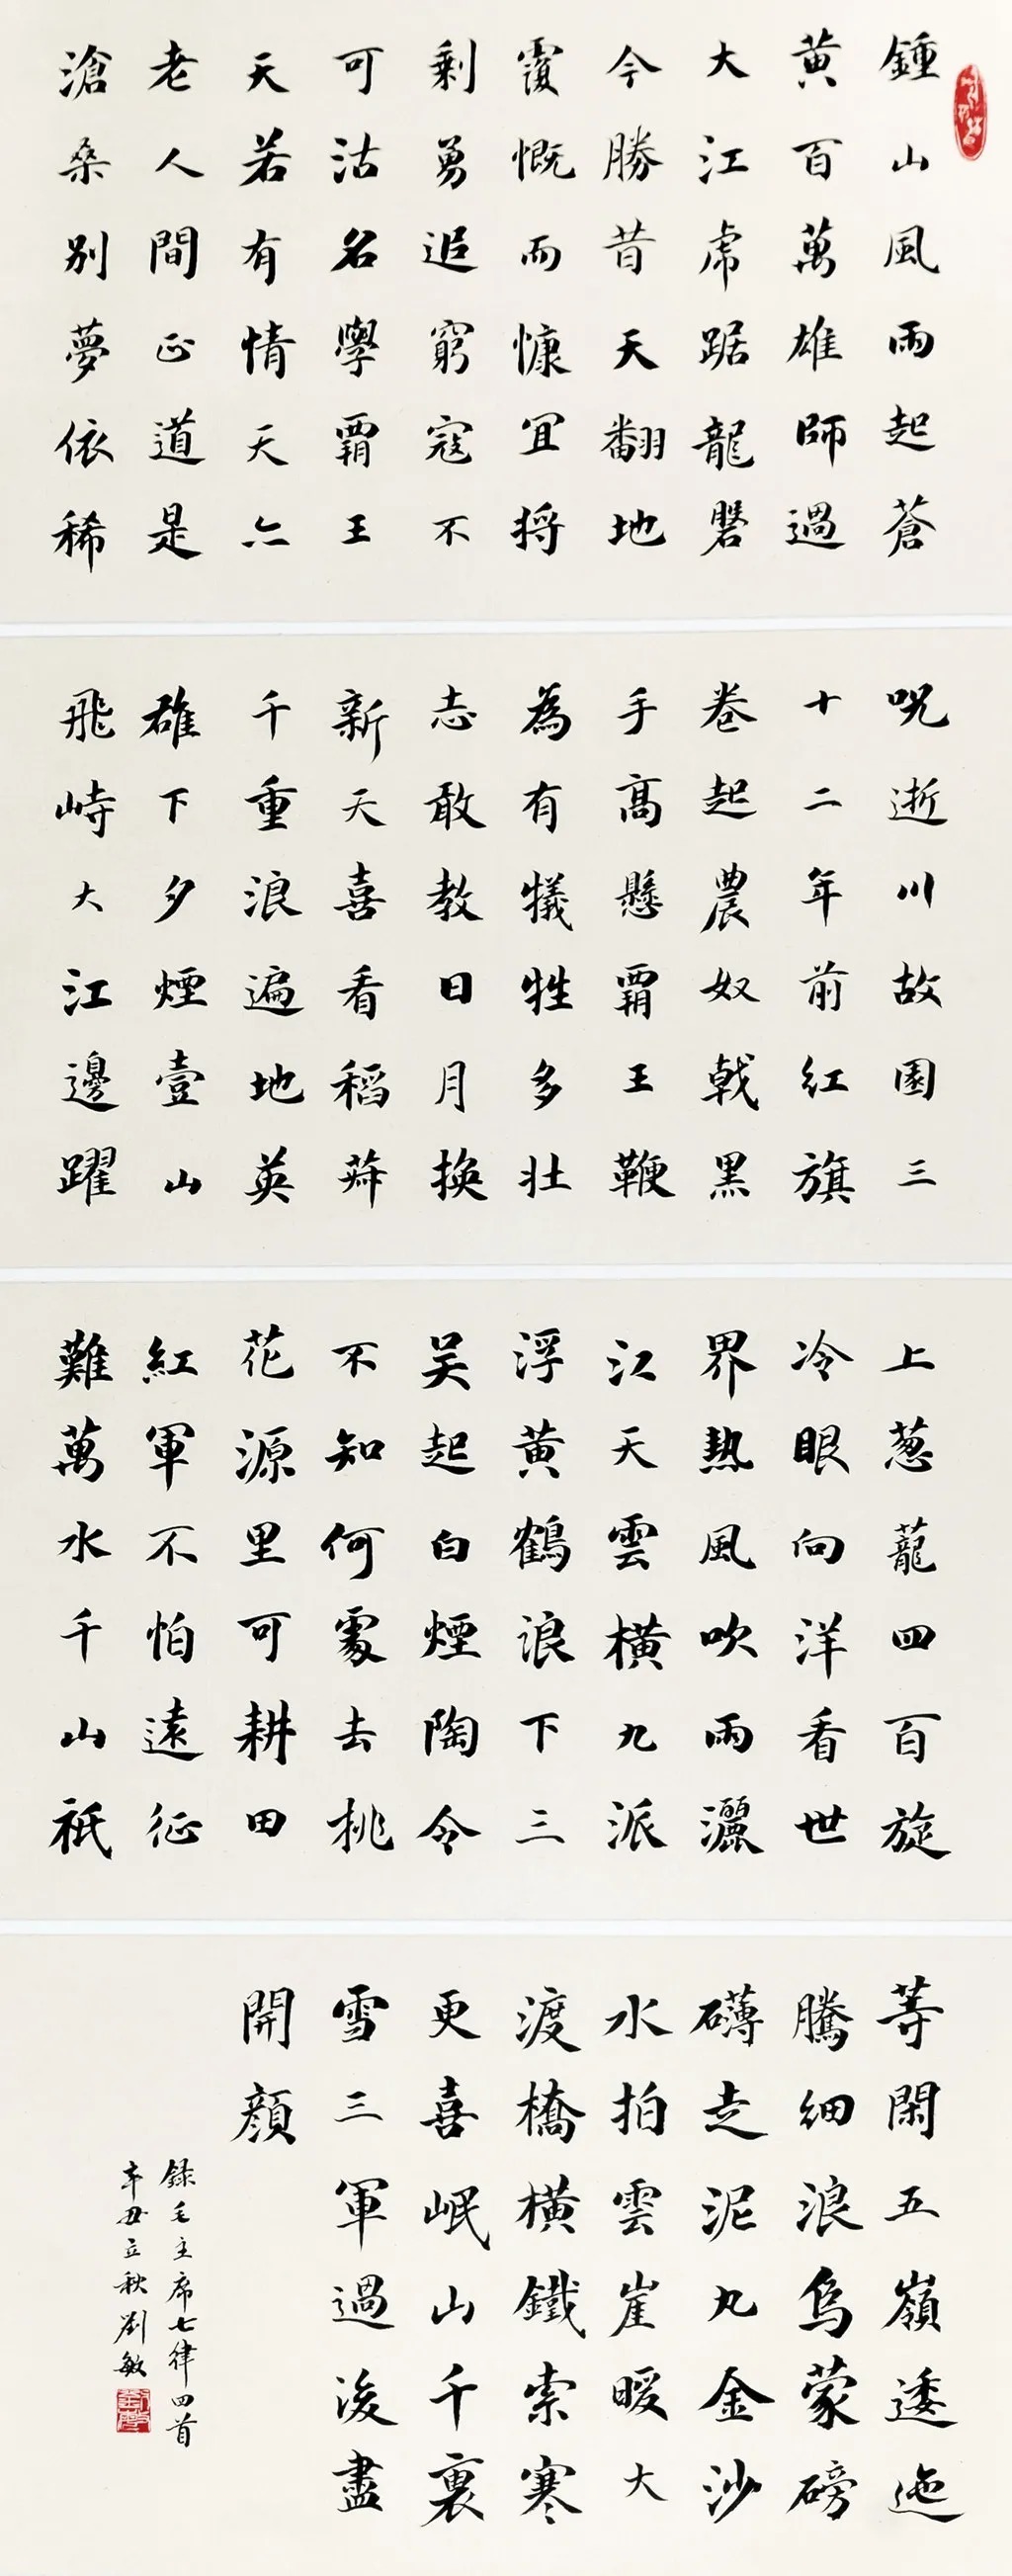 鍾山風雨起蒼
黃百萬雄師過
大江虎踞龍磐
今勝昔天翻地
覆慨而慷宜將
剩勇追窮寇不
可沽名學霸王
天若有情天亦
老人間正道是
滄桑別夢依稀
咒逝川故園三
十二年前紅旗
卷起農奴戟黑
手高懸霸王鞭
為有犧牲多壯
志敢教日月換
新天喜看稻菽
千重浪遍地英
雄下夕煙壹山
飛峙大江邊躍
上葱蘢四百旋
冷眼向洋看世
界熱風吹雨灑
江天雲橫九派
浮黃鶴浪下三
吳起白煙陶令
不知何處去桃
花源里可耕田
紅軍不怕遠征
難萬水千山祇
等閑五嶺逶迤
騰細浪烏蒙磅
礴走泥丸金沙
水拍雲崖暖大
渡橋橫鐵索寒
更喜岷山千裏
雪三軍過後盡
開顏
錄毛主席七律四首
辛丑立秋劉敏